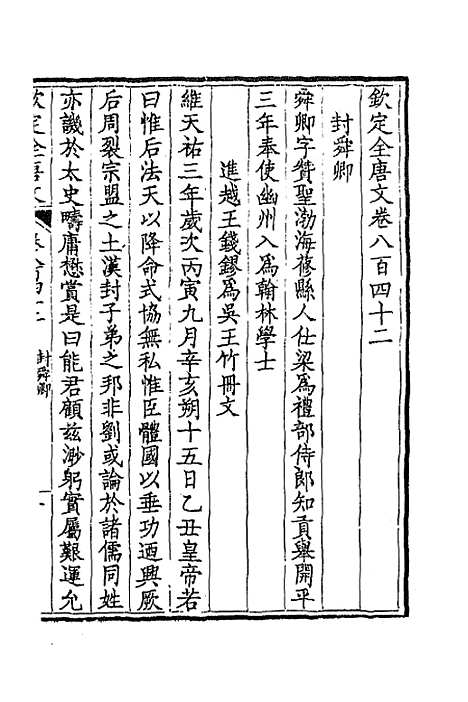 欽定全唐文卷八百四十二
封舜卿
舜卿字贊聖渤海蓚縣人仕梁爲禮部侍郎知貢舉開平
三年奉使幽州入爲翰林學士
進越王錢鏐爲吳王竹冊文
維天祐三年歲次丙寅九月辛亥朔十五日乙丑皇帝若
曰惟后法天以降命式協無私惟臣體國以垂功迺興厥
后周裂宗盟之土漢封子弟之邦非劉或論於諸儒同姓
亦譏於太史疇庸懋賞是曰能君顧兹渺躬實屬艱運允
欽定全唐文
卷八百四十二
封舜卿
一